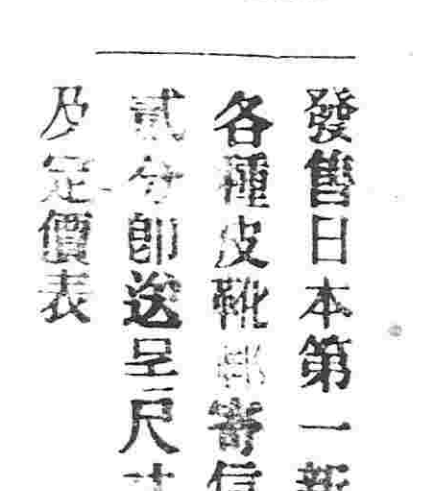 發售日本第一新
各種皮靴郵寄信
貳分即送呈尺寸
及定價表